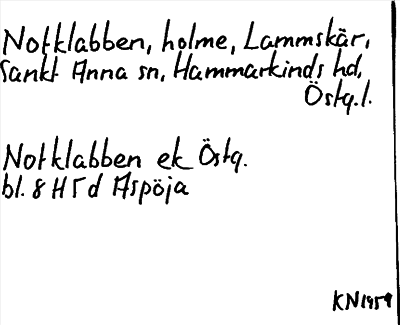 Notklabben, holme, Lammskär,
Sankt Anna sn, Hammarkinds hd,
Östg.l.
Notklabben ek Östg.
bl. 8 H 5 d Aspöja
KN 1959